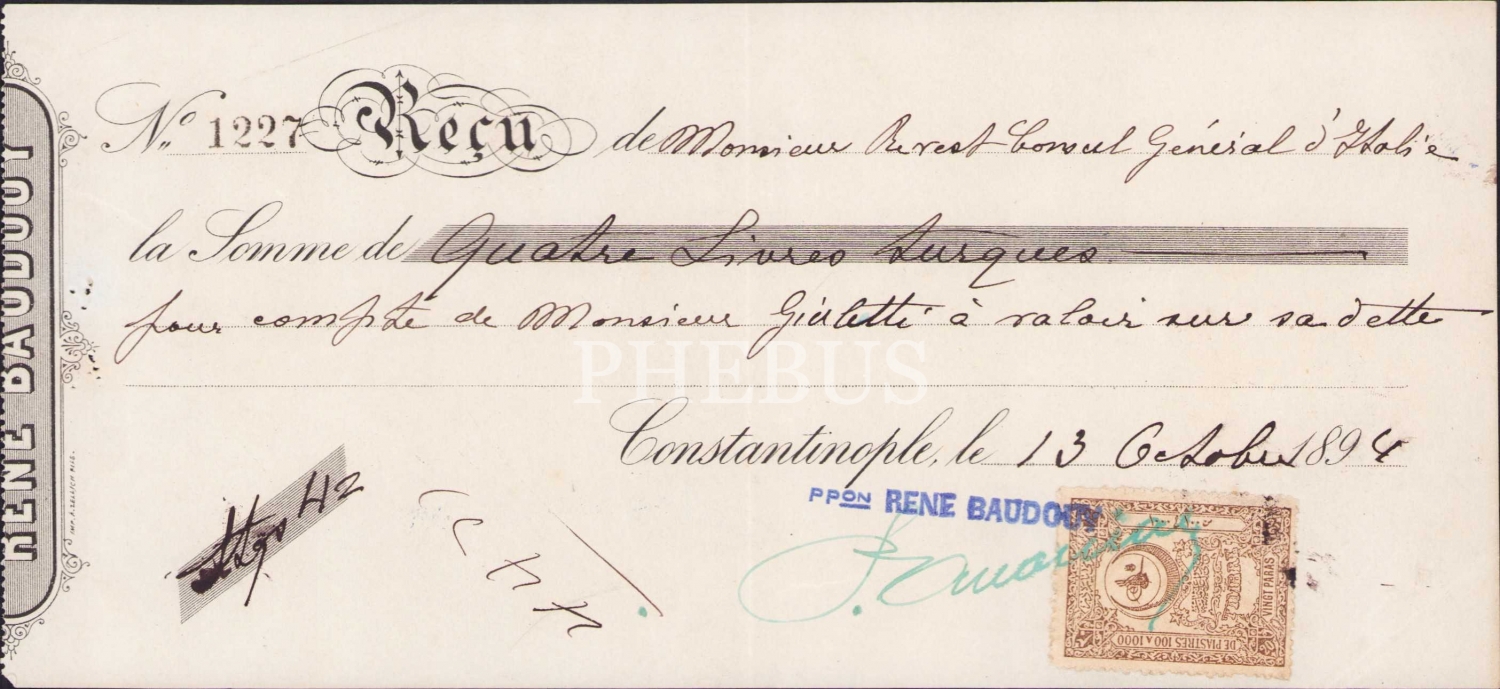 RENE BAUDOUY
No. 1227 Reçu de Monsieur Revest Consul Général d'Italie
la Somme de Quatre Livres turques
pour compte de Monsieur Giuletti à valoir sur sa dette
PHEBUS
Constantinople, le 13 Octobre 1894
PPON RENE BAUDOUY
DE PIASTRES 100 A 1000
VINGT PARAS